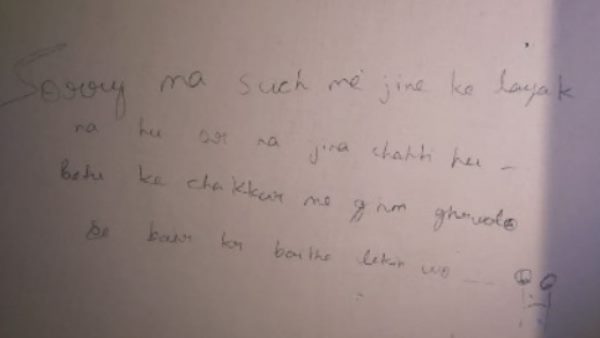 Sorry ma such me jine ke layak
na hu or na jina chahti hu -
ke chakkar me gharwalo
se bair kr baithe lekin wo ----